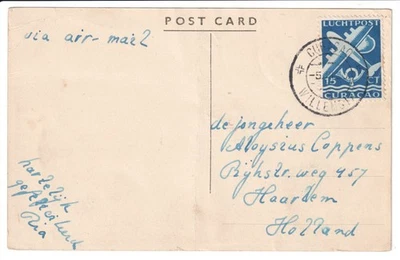 POST CARD
via air-mail
LUCHTPOST
15 CT
CURAÇAO
WILLEMST
de jongeheer
Aloysius Coppens
Rijkstr.weg 457
Haarlem
Holland
hartelijk
gefeliciteerd
Ria